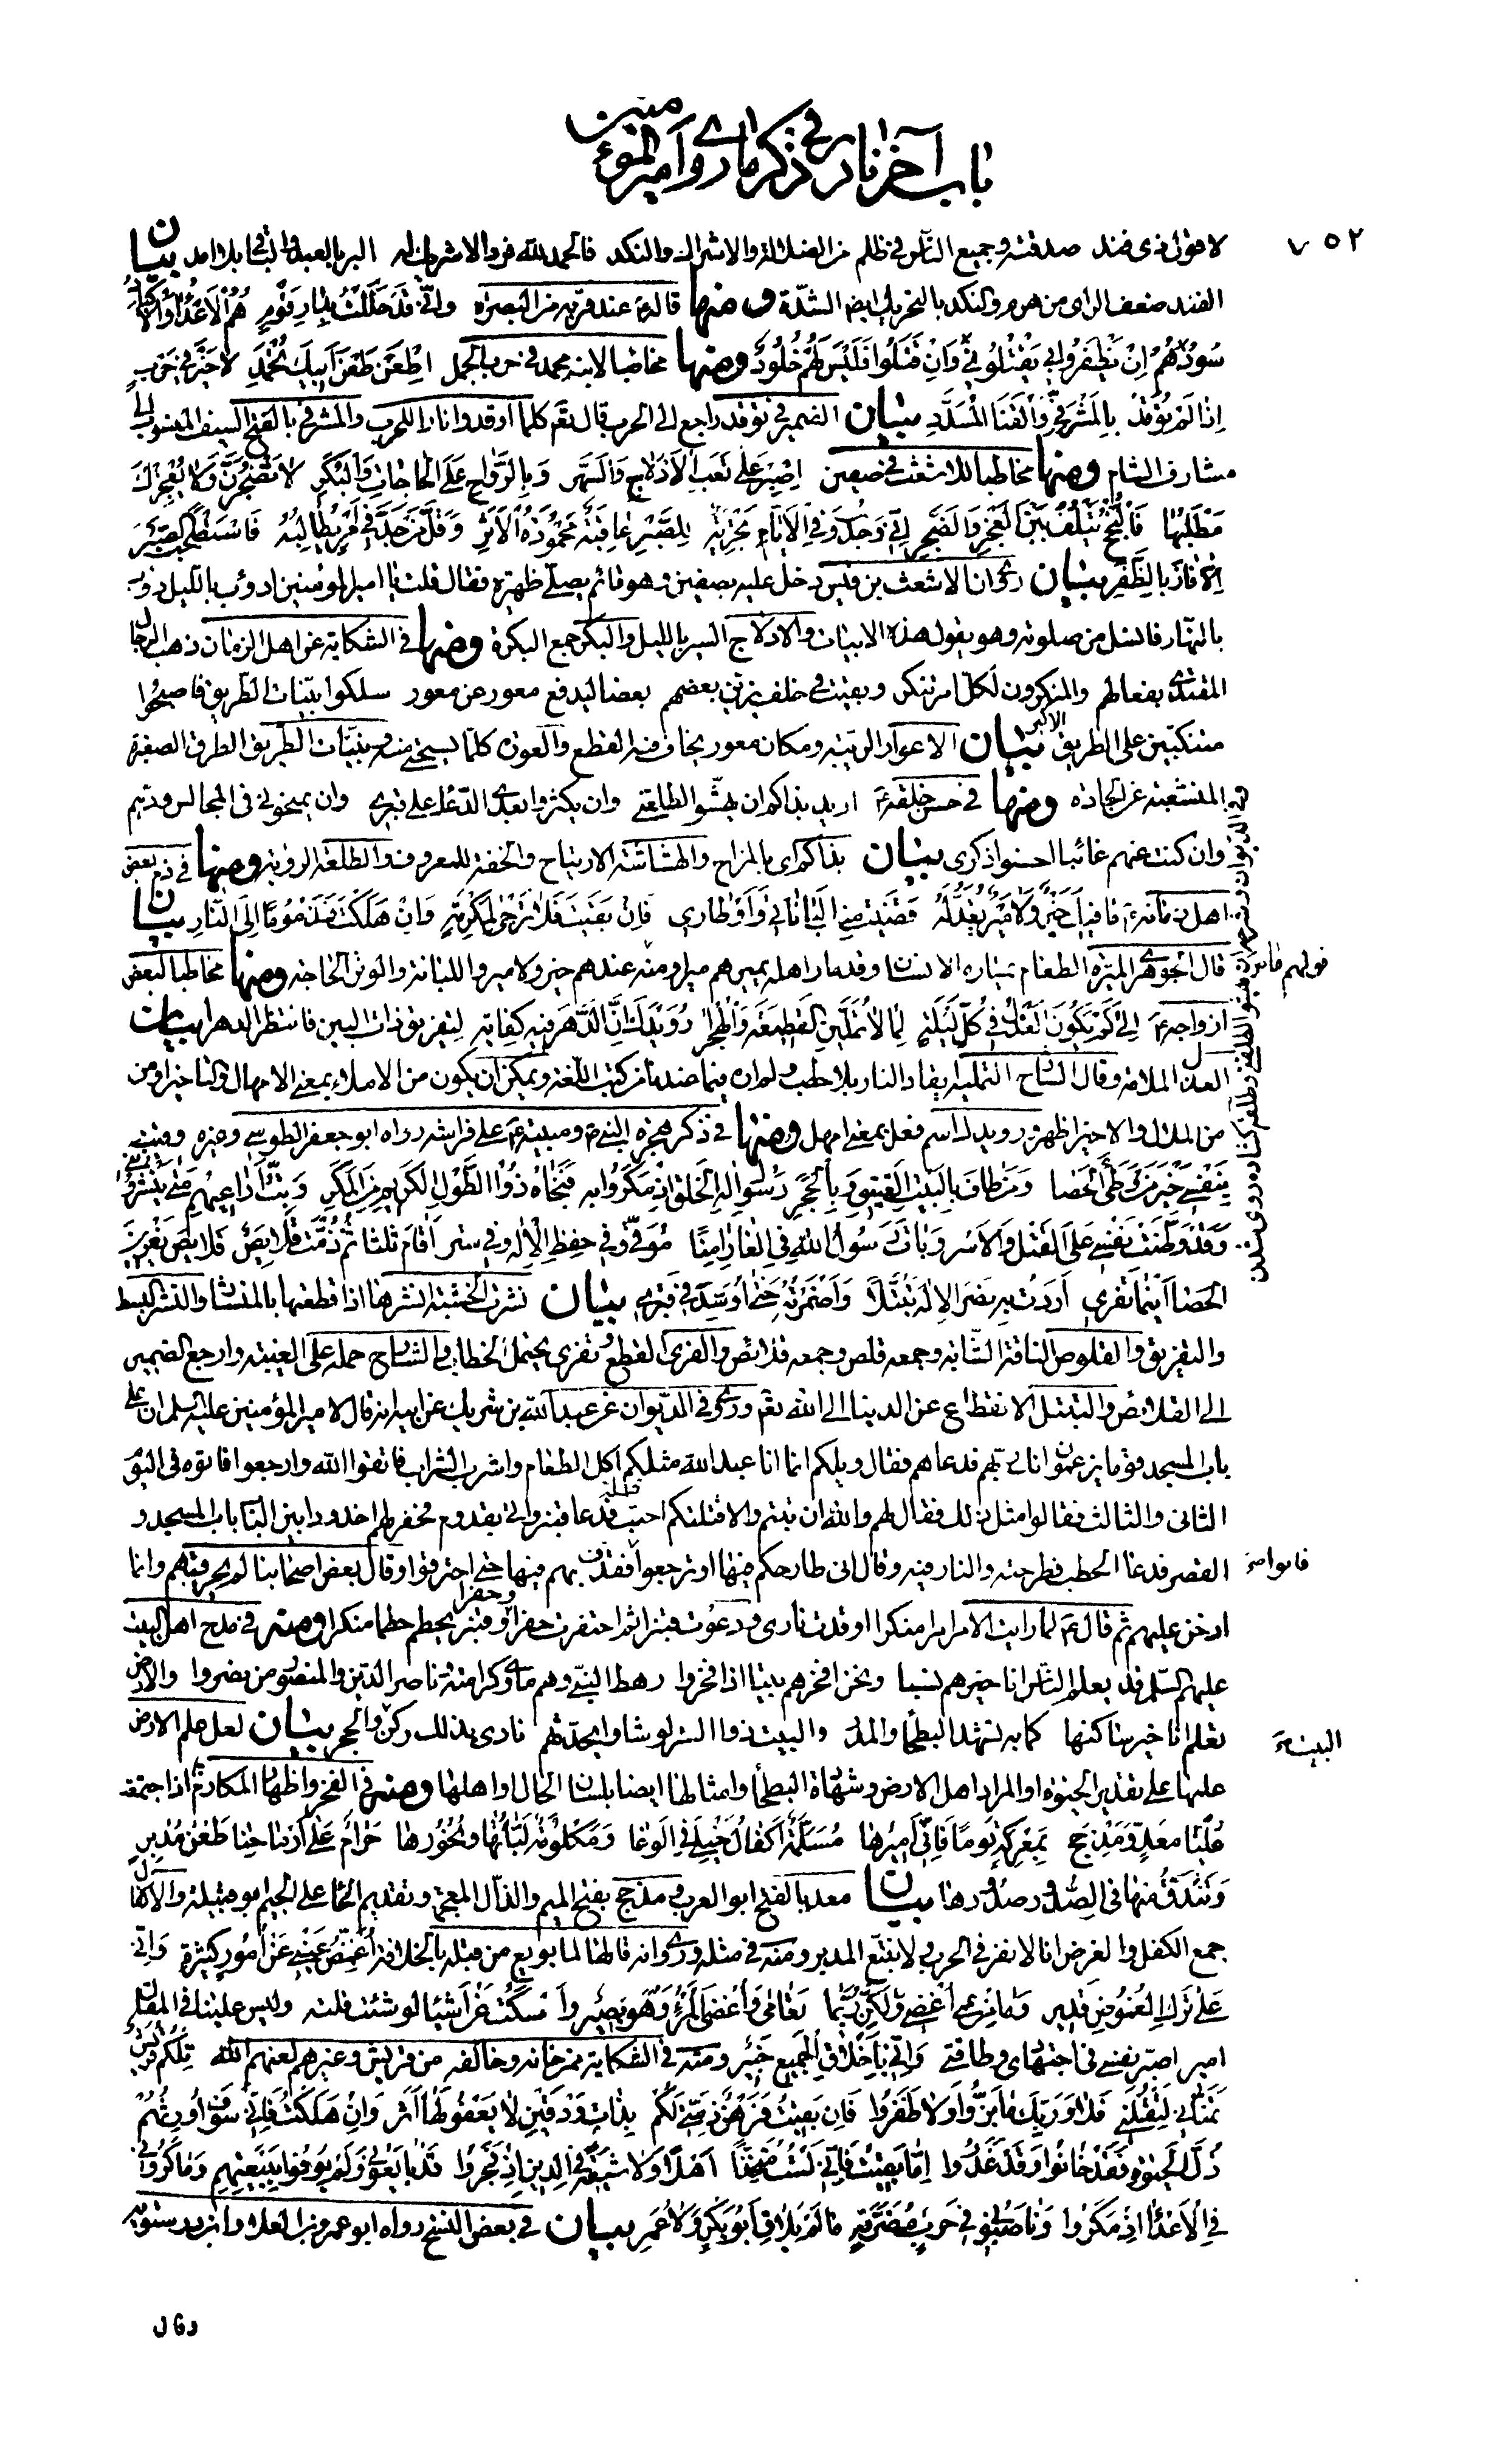 باب آخر نادر في ذكر ما روي أمير المؤمنين
٧٥٢
لا قول ذي فند صدقته وجميع الناس في ظلم من الضلالة والاشراك والنكد فالحمد لله فردا لا شريك له البر بالعبد والباقي بلا امد بيان
الفند ضعف الراي من هرم والنكد بالتحريك ايضا الشدة ومنها قاله عند قربه من البصرة واني قد حللت بدار قوم هم الاعداء والاكباد
سود هم ان يظفروا بي يقتلوني وان قتلوا فليس لهم خلود ومنها مخاطبا لابنه محمد في حرب الجمل اطعن طعن ابيك تحمد لا خير في حرب
اذا لم توقد بالمشرفي والقنا المسدد بيان الضمير في توقد راجع الى الحرب قال تعالى كلما اوقدوا نارا للحرب والمشرفي بالفتح السيف المنسوب الى
مشارف الشام ومنها مخاطبا للاشعث في صفين اصبر على تعب الادلاج والسهر وبالرواح على الحاجات والبكر لا تضجرن ولا يعجزك
مطلبها فالنجح يتلف بين العجز والضجر اني وجدت وفي الايام تجربة للصبر عاقبة محمودة الاثر وقل من جد في امر يطالبه فاستصحب الصبر
الا فاز بالظفر بيان روي ان الاشعث بن قيس دخل عليه بصفين وهو قائم يصلي ظهيرة فقال قلت يا امير المؤمنين ادؤب بالليل دؤب
بالنهار فانسل من صلوته وهو يقول هذه الابيات والادلاج السير بالليل والبكر جمع البكرة ومنها في الشكاية عن اهل الزمان ذهب الرجال
المقتدى بفعالهم والمنكرون لكل امر منكر وبقيت في خلف يزين بعضهم بعضا ليدفع معور عن معور سلكوا بنيات الطريق فاصبحوا
متنكبين على الطريق الاكبر بيان الاعوار الريبة ومكان معور يخاف فيه القطع والعورة كلما يستحيى منه وبنيات الطريق الطرق الصغيرة
المنشعبة عن الجادة ومنها في حسن خلقه اريد بذاكم ان يهشوا لطلعتي وان يكثروا بعدي الدعاء على قبري وان يمنحوني في المجالس ودهم
وان كنت عنهم غائبا احسنوا ذكري بيان بذاكم اي بالمزاح والهشاشة الارتياح والخفة للمعروف والطلعة الرؤية ومنها في ذم بعض
اهل زمانه ما فيه خير ولا مير يعد له قضيت منه لباناتي واوطاري فان بقيت فلا ترجى لمكرمة وان هلكت فمذموما الى النار بيان
قال الجوهري الميرة الطعام يمتاره الانسان وقد مار اهله يميرهم ميرا ومنه ما عندهم خير ولا مير واللبانة والوطر الحاجة ومنها مخاطبا لبعض
ازواجه الى كم يكون العذل في كل ليلة لما لا تملين القطيعة والهجرا رويدك ان الدهر فيه كفاية لتفريق ذات البين فانتظر الدهرا بيان
العذل الملامة وقال الشارح التملية ايقاد النار بلا حطب ولم اره فيما عندنا من كتب اللغة ويمكن ان يكون من الاملاء بمعنى الامهال والتاخير او من
من الملال والاخير اظهر ورويدك اسم فعل بمعنى امهل ومنها في ذكر هجرة النبي ومبيته على فراشه رواه ابو جعفر الطوسي وغيره وقيت
بنفسي خير من وطئ الحصا ومن طاف بالبيت العتيق وبالحجر رسول اله الخلق اذ مكروا به فنجاه ذو الطول الكريم من المكر وبت اراعيهم متى ينشرونني
وقد وطنت نفسي على القتل والاسر وبات رسول الله في الغار امنا موقى وفي حفظ الاله وفي ستر اقام ثلثا ثم زمت قلائص قلائص يفرين
الحصا اينما تفري اردت به نصر الاله تبتلا واضمرته حتى اوسد في قبري بيان نشرت الخشبة نشرها اذا قطعتها بالمنشار والنشر البسط
والتفريق والقلوص الناقة الشابة وجمعه قلص وجمعه قلائص والفري القطع وتفري يحتمل الخطاب والشارح حمله على الغيبة وارجع الضمير
الى القلائص والتبتل الانقطاع عن الدنيا الى الله تعالى وروي في الديوان عن عبد الله بن شريك عن ابيه انه قال لامير المؤمنين عليه السلم ان على
باب المسجد قوما يزعمون انك ربهم فدعاهم فقال ويلكم انما انا عبد الله مثلكم اكل الطعام واشرب الشراب فاتقوا الله وارجعوا فاتوه في اليوم
الثاني والثالث فقالوا مثل ذلك فقال لهم والله ان تبتم والا قتلتكم اخبث قتلة فدعا قنبرا واتى بقدوم فحفر لهم اخدودا بين الباب باب المسجد و
القصر فدعا الحطب فطرحته والنار فيه وقال اني طارحكم فيها او ترجعوا فقذف بهم فيها حتى احترقوا وقال بعض اصحابنا لم يحرقهم وانما
ادخن عليهم ثم قال لما رايت الامر امرا منكرا اوقدت ناري ودعوت قنبرا ثم احتفرت حفرا وحفرا وقنبر يحطم حطما منكرا ومنه في مدح اهل البيت
عليهم السلم قد يعلم الناس انا خيرهم نسبا ونحن افخرهم بيتا اذا فخروا رهط النبي وهم ماوى كرامته وناصر الدين والمنصور من نصروا والارض
تعلم انا خير ساكنها كما به تشهد البطحاء والمدر والبيت ذو الستر لو شاؤا يحدثهم نادى بذلك ركن والحجر بيان لعل علم الارض
علمها على تقدير الحيوة او المراد اهل الارض وشهادة البطحاء وامثالها ايضا بلسان الحال او اهلها ومنه في الفخر واظهار المكارم اذا اجتمعت
عليا معد ومذحج بمعركة يوما فاني اميرها مسلمة اكفال خيلي في الوغا ومكلومة لباتها ونحورها حرام على ارماحنا طعن مدبر
وتندق منها في الصدور صدورها بيان معد بالفتح ابو العرب ومذحج بفتح الميم والذال المعجمة وتقديم الحاء على الجيم ابو قبيلة والاكفال
جمع الكفل والغرض انا لا نفر في الحرب ولا نتبع المدبر ومنه في مثله وروي انه قالها لما بويع من قبله بالخلافة اغمض عيني عن امور كثيرة واني
على ترك الغموض قدير وما من عمى اغضي ولكن ربما تعامى واغضى المرء وهو بصير واسكت عن اشيا لو شئت قلته وليس علينا في المقال
امير اصبر نفسي في اجتهادي وطاقتي واني باخلاق الجميع خبير ومنه في الشكاية ممن خانه وخالفه من قريش وغيرهم لعنهم الله تلكم قريش
تمناني لتقتلني فلا وربك ما بزوا ولا ظفروا فان بقيت فرهن ذمتي لكم بذات ودقين لا يعفو لها اثر وان هلكت فاني سوف اورثهم
ذل الحيوة فقد خانوا وقد غدروا اما بقيت فاني لست متخذا اهلا ولا شيعة في الدين اذ فجروا قد بايعوني ولم يوفوا ببيعتهم وماكروني
في الاعداء اذ مكروا وناصبوني في حرب مضرمة ما لم يلاق ابو بكر ولا عمر بيان في بعض النسخ رواه ابو عمرو بن العلاء وابن درستويه
قولهم
فاتوا
البيت